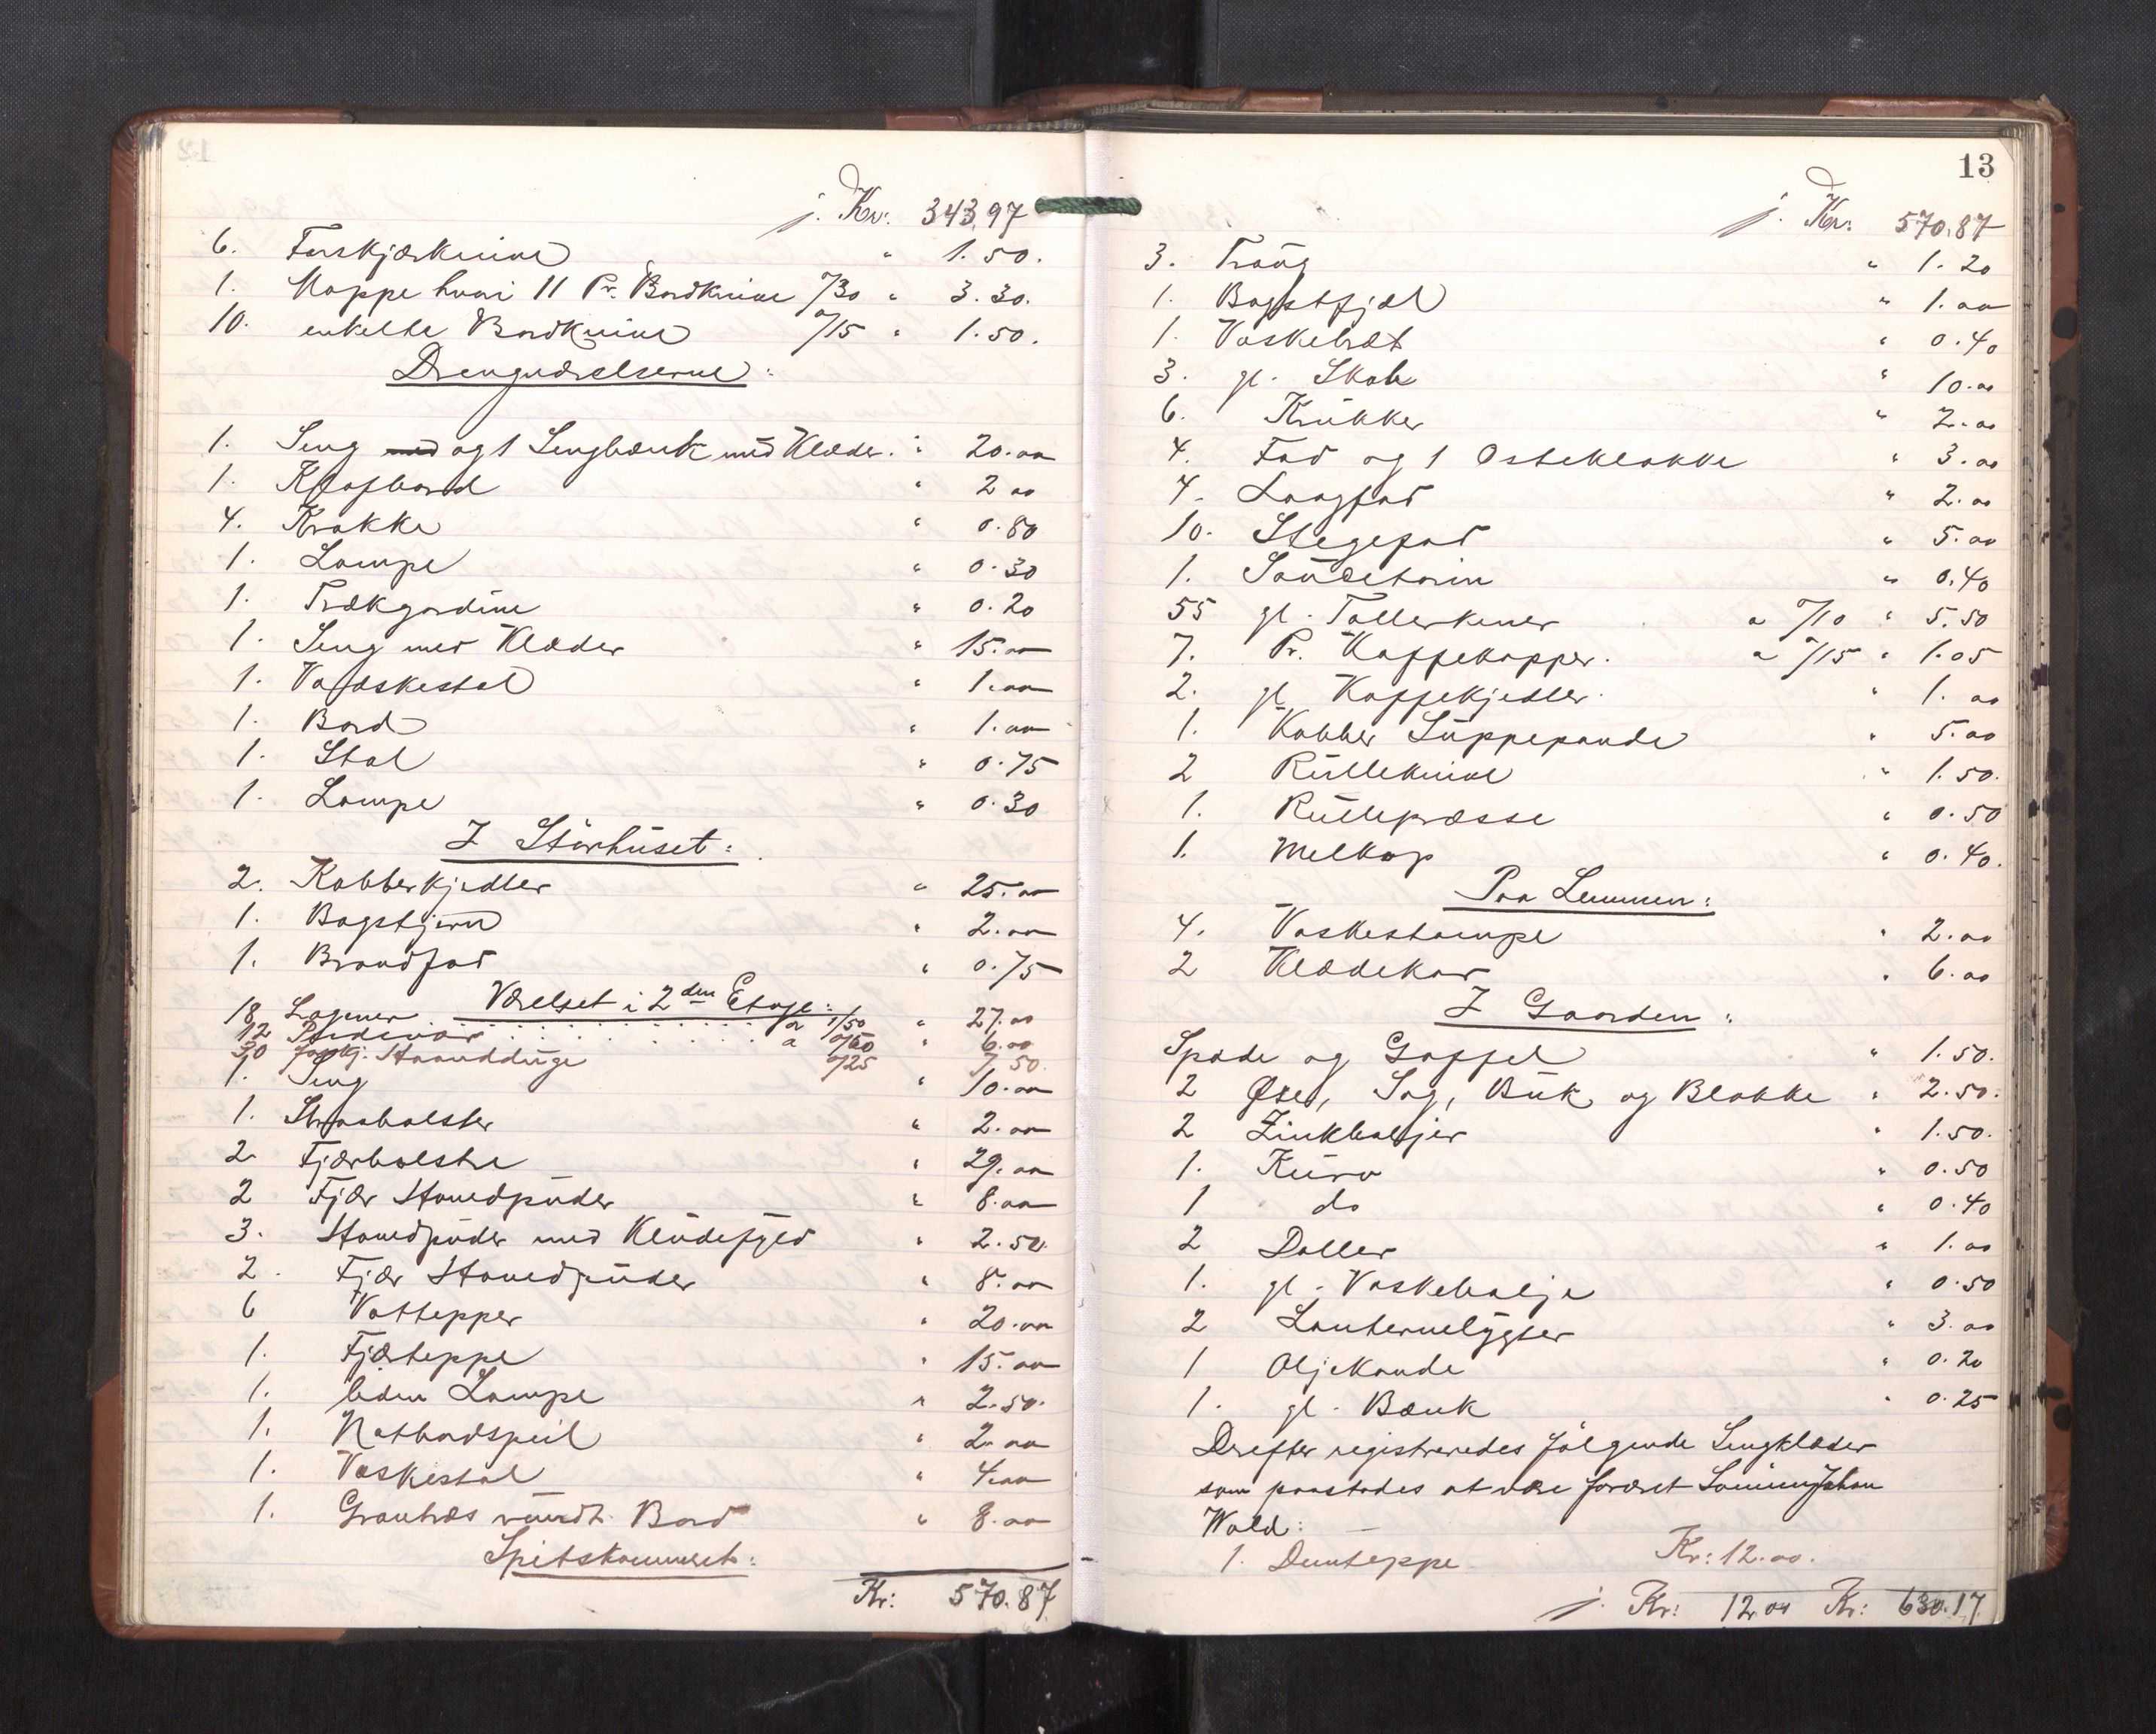 12
j. Kr. 343.97
6. Forskjærknive " 1.50.
1. Mappe hvori 11 Pr. Bordknive 0/30 " 3.30.
10. enkelte Bordknive 0/15 " 1.50.
Drengeværelserne:
1. Seng med og 1 Sengbænk med Klæder. " 20.00
1. Klafbord " 2.00
4. Krakke " 0.80
1. Lampe " 0.30
1. Trækgardine " 0.20
1. Seng med Klæder " 15.00
1. Vaskestol " 1.00
1. Bord " 1.00
1. Stol " 0.75
1. Lampe " 0.30
I Störhüset:
2. Kobberkjedler " 25.00
1. Bagstjern " 2.00
1. Brandfad " 0.75
Værelset i 2den Etage:
18 Lagener a 1/50 " 27.00
12 Pudevar a 0/50 " 6.00
30 forskj. Haandduge 0/25 7.50.
1. Seng " 10.00
1. Straabolster " 2.00
2 Fjærbolstre " 29.00
2 Fjær Hovedpüder " 8.00
3. Hovedpüder med Klüdefyld " 2.50.
2. Fjær Hovedpüder " 8.00
6 Vattepper " 20.00
1. Fjærteppe " 15.00
1. liden Lampe " 2.50.
1. Natbordspeil " 2.00
1. Vaskestol " 4.00
1. Grantræs rundt Bord " 8.00
Spitskammeret:
Kr: 570.87
13
j. Kr: 570.87
3. Traüg " 1.20
1. Bagstfjæl " 1.00
1. Vaskebræt " 0.40
3. gl. Skab " 10.00
6. Krükker " 2.00
4. Fad og 1 Osteklokke " 3.00
4. Laagfad " 2.00
10. Stegefad " 5.00
1. Saüseterin " 0.40
55 gl. Tallerkener a 0/10 " 5.50
7. Pr. Kaffekopper. a 0/15 " 1.05
2. gl. Kaffekjedler. " 1.00
1. Kobber Süppepande " 5.00
2 Rülleknive " 1.50.
1. Rüllepræsse " 0.50
1. Melkop " 0.40.
Paa Lemmen:
4. Vaskestampe " 2.00
2 Klædekar " 6.00
I Gaarden:
Spade og Gaffel " 1.50.
2 Øxe, Sag, Bük og Blokke " 2.50.
2 Zinkbaljer " 1.50.
1. Kürv " 0.50
1 do " 0.40
2 Daller " 1.00
1. gl. Vaskebalje " 0.50
2 Lanternelygter " 3.00
1 Oljekande " 0.20
1. gl. Bænk " 0.25
Derefter registreredes følgende Sengklæder
som paastodes at være foræret Sønnen Johan
Wold:
1. Dunteppe Kr: 12.00.
j. Kr: 12.00 Kr: 630.17